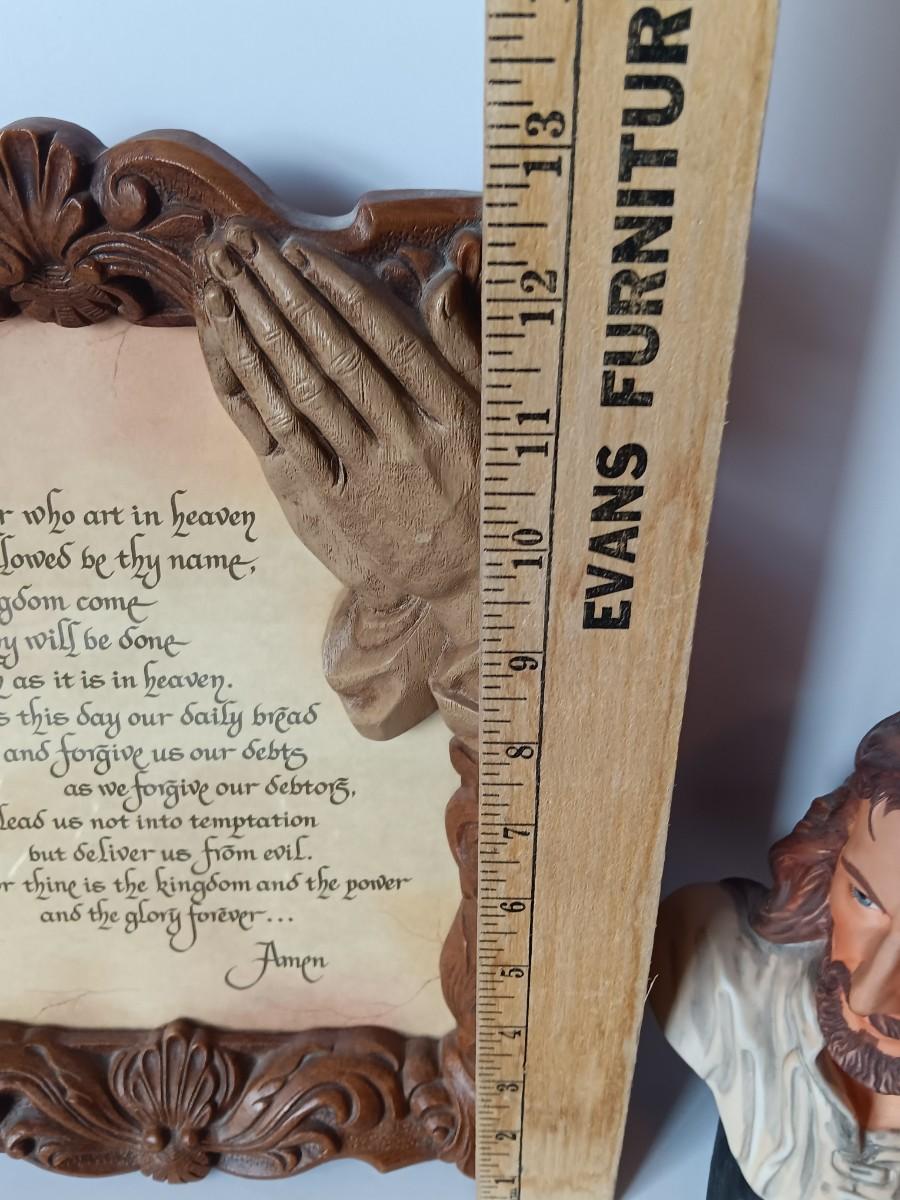 r who art in heaven
lowed be thy name,
gdom come
y will be done
as it is in heaven.
s this day our daily bread
and forgive us our debts
as we forgive our debtors,
lead us not into temptation
but deliver us from evil.
r thine is the kingdom and the power
and the glory forever...
Amen
13
12
11
10
9
8
7
6
5
4
3
2
1
EVANS FURNITUR